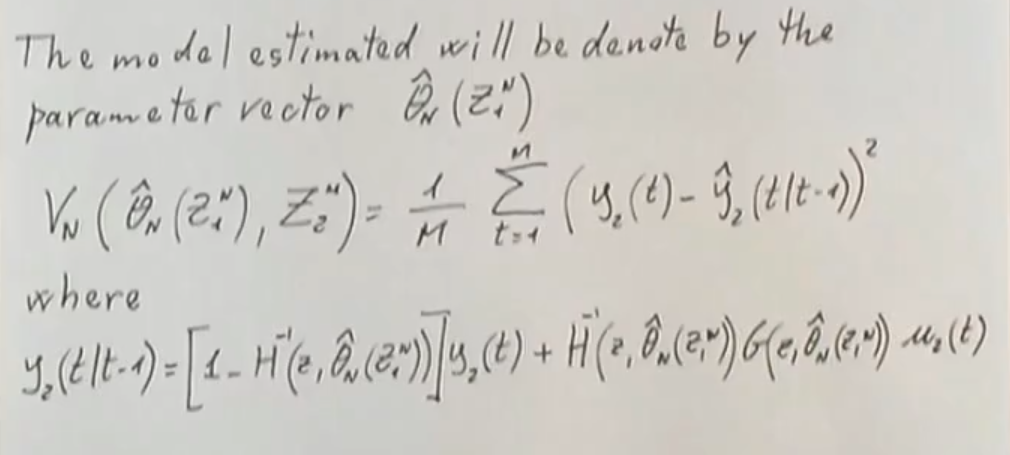 The model estimated will be denote by the
parameter vector θ̂_N (Z₁ᴺ)
V_N ( θ̂_N (Z₁ᴺ), Z₂ᴹ) = 1/M Σ_{t=1}^{M} ( y₂(t) - ŷ₂(t|t-1))²
where
y₂(t|t-1) = [1 - H⁻¹(z, θ̂_N(Z₁ᴺ))] y₂(t) + H⁻¹(z, θ̂_N(Z₁ᴺ)) G(z, θ̂_N(Z₁ᴺ)) u₂(t)